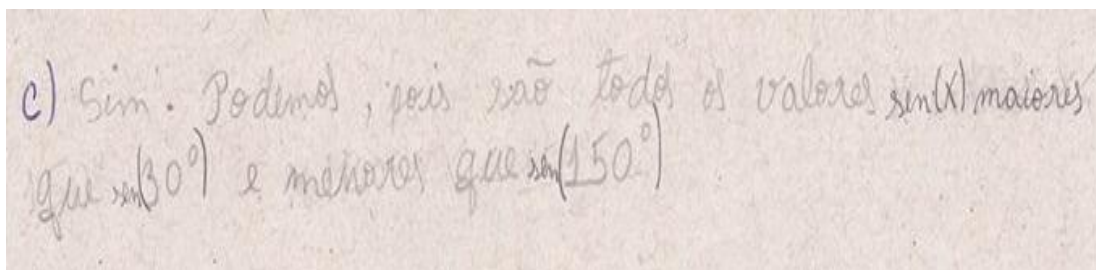 c) Sim. Podemos, pois são todos os valores sen(x) maiores
que sen(30°) e menores que sen(150°)